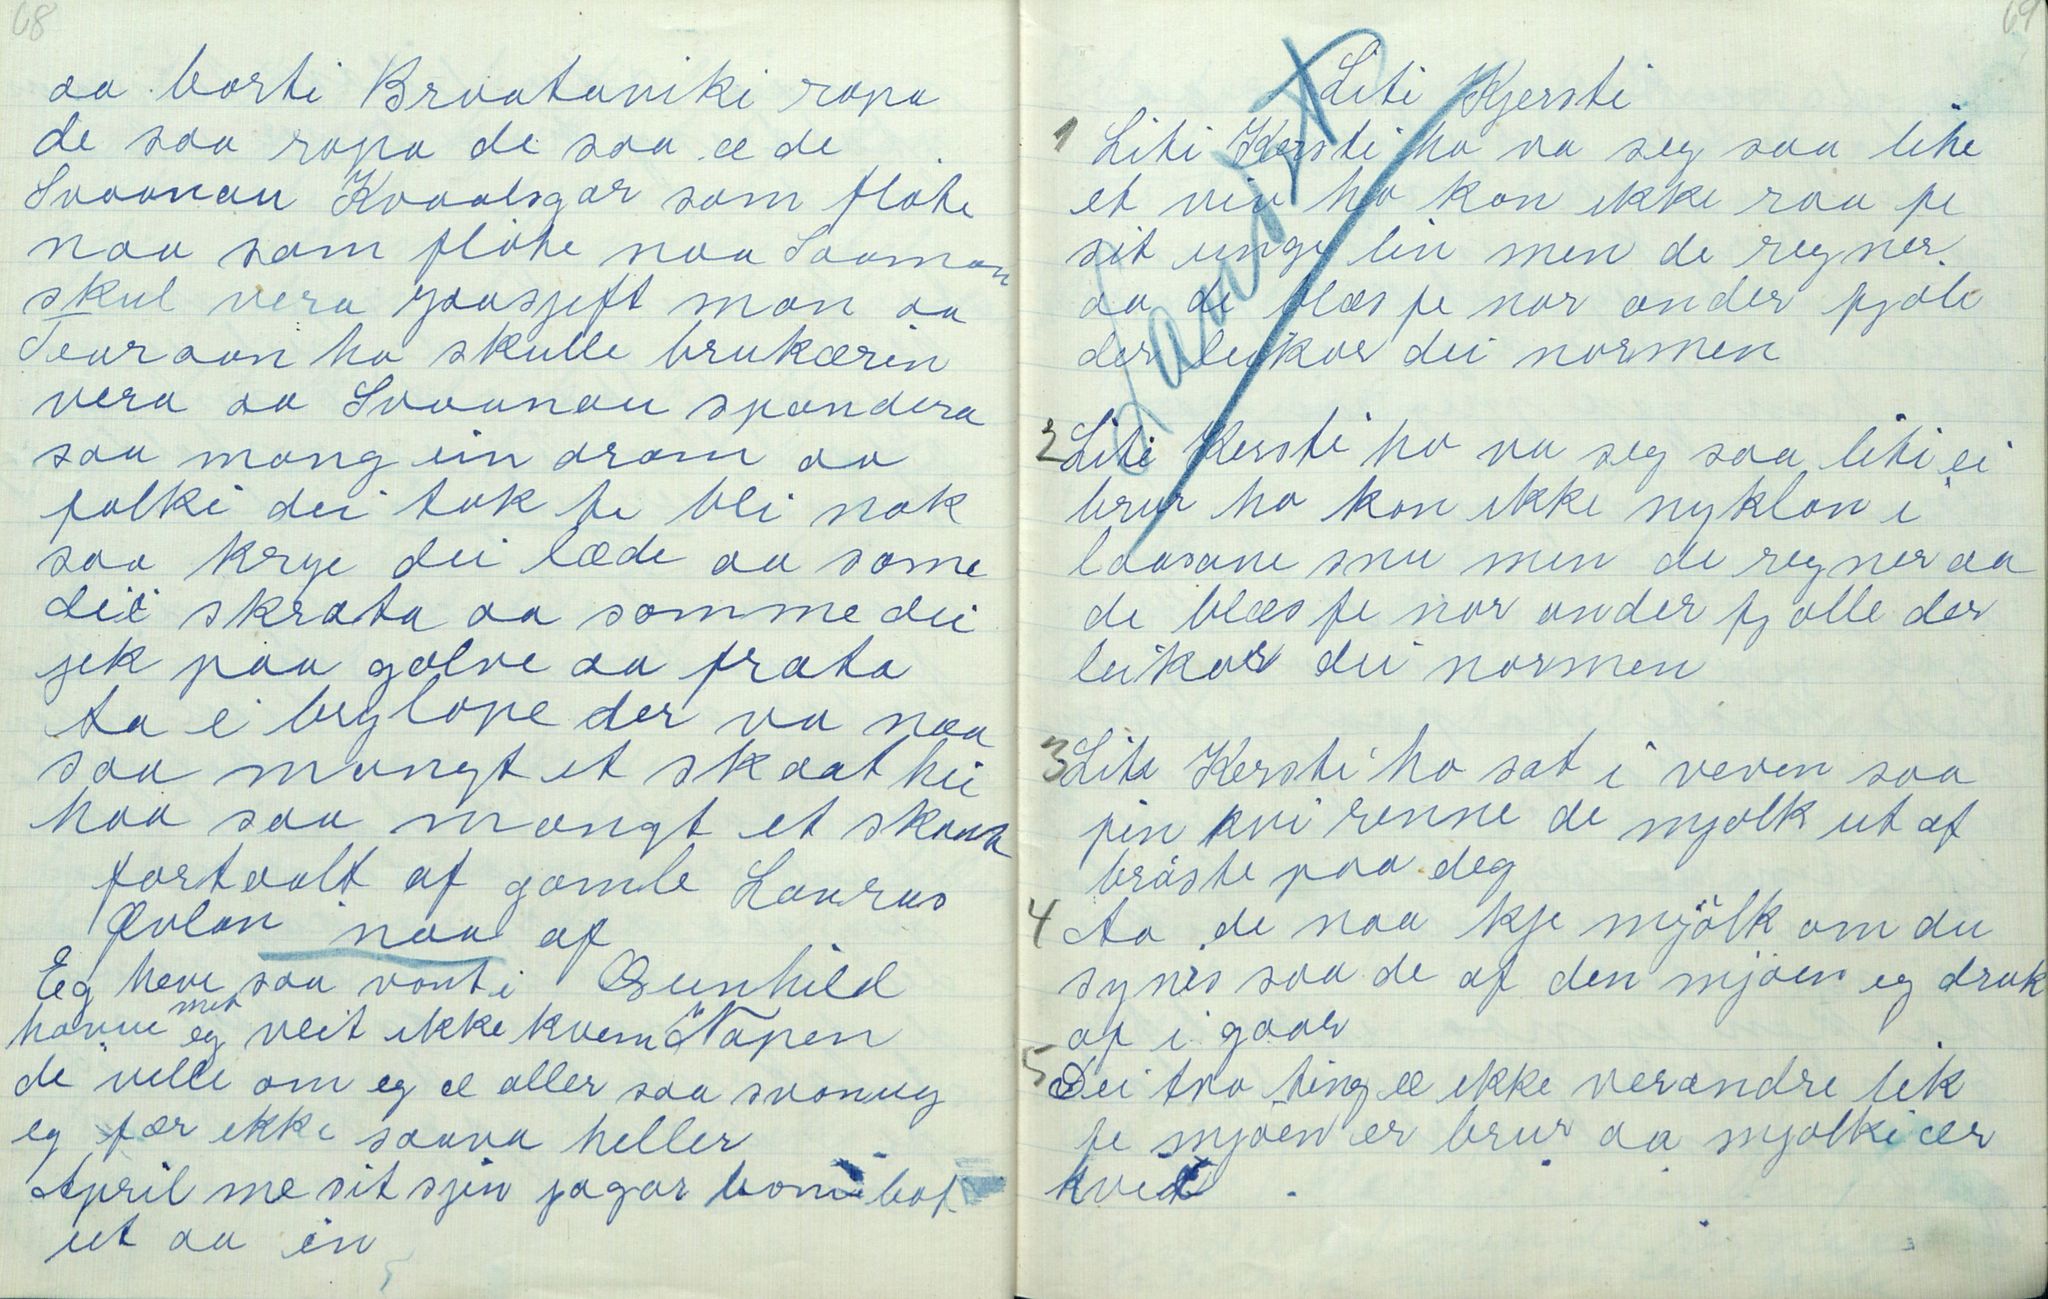 68
aa borti Braataniki ropa
de saa ropa de saa æ de
Svaanau Kvaalsgar som fløte
naa som fløte naa Saamon
skul vera gaasjeft mon aa
Tearaan ho skulle brukærin
vera aa Svaanau spandera
saa mang ein dram aa
folki dei tok te bli nok
saa krye dei læde aa some
dei skrata aa somme dei
jek paa golve aa frata
ta i brylope der va naa
saa mangt et skaat hei
haa saa mangt et skaat
fortaalt af gamle Lavras
Øvlan naa af
Gunhild
Nöapen
Eg heve saa vont i
havue met eg veit ikke kvem
de ville om eg æ aller saa svonug
eg fær ikke saava heller
April me sit sjin jagar bonibaf
ut aa in
69
Liti Kjersti
Landst
1 Liti Kersti ho va seg saa lite
et viv ho kan ikke raa fe
sit unge liv men de regner
aa de blæs fe nor under fjøle
der leikar dei normen
2 Liti Kersti ho va seg saa liti ei
brur ho kan ikke nyklan i
laasane snu men de regner aa
de blæs fe nor under fjølle der
leikar dei normen
3 Lite Kersti ho sat i veven saa
fin kvi renne de mjølk ut af
brøste paa deg
4 Aa de naa kje mjølk om du
synes saa de af den mjøen eg drak
af i gaar
5 Dei tvo ting æ ikke verandre lik
fe mjøen er brur aa mjølki ær
kvit